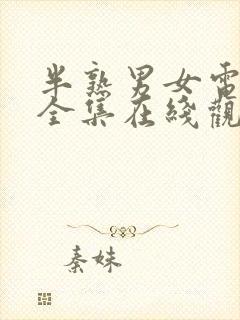 半熟男女電
全集在綫觀
秦妹